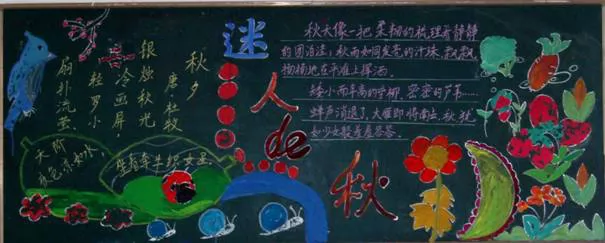 秋夕
唐 杜牧
银烛秋光
冷画屏,
轻罗小
扇扑流萤
天阶
夜色凉如水,
坐看牵牛织女星
迷人de秋
秋天像一把柔韧的梳理着静静
的园;秋雨如同发亮的汗珠,飘飘
扬扬地在上挥洒。
矮小而年高的垂柳、密密的芦苇……
蝉声消退了,大雁即将南去,秋,犹
如少女般羞羞答答。